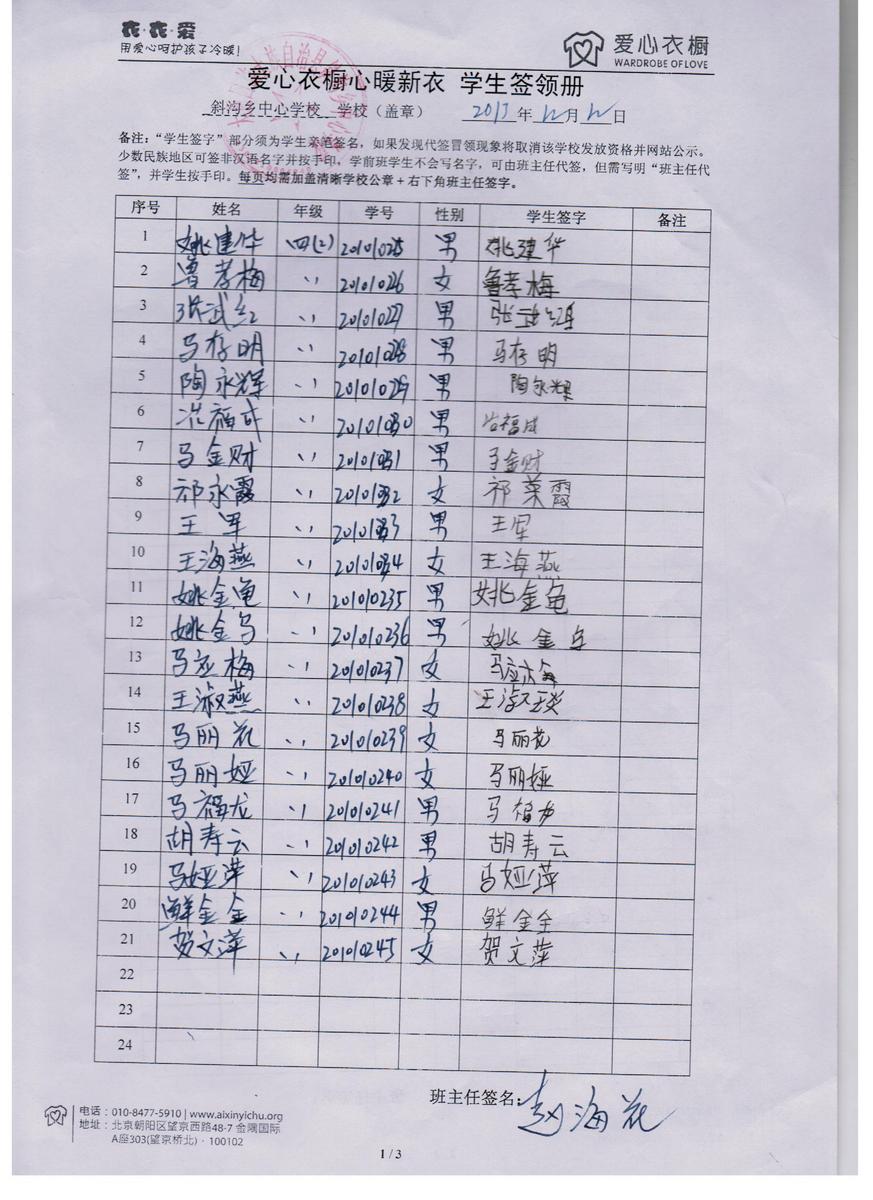 衣·衣·爱
用爱心呵护孩子冷暖！
爱心衣橱
WARDROBE OF LOVE
爱心衣橱心暖新衣 学生签领册
斜沟乡中心学校 学校（盖章） 2013年12月12日
备注：“学生签字”部分须为学生亲笔签名，如果发现代签冒领现象将取消该学校发放资格并网站公示。
少数民族地区可签非汉语名字并按手印，学前班学生不会写名字，可由班主任代签，但需写明“班主任代
签”，并学生按手印。每页均需加盖清晰学校公章+右下角班主任签字。
序号 姓名 年级 学号 性别 学生签字 备注
1 姚建华 四(2) 201010225 男 姚建华
2 鲁孝梅 〃 201010226 女 鲁孝梅
3 张武红 〃 201010227 男
4 马存明 〃 201010228 男 马存明
5 陶永辉 〃 201010229 男 陶永辉
6 福成 〃 201010230 男 福成
7 马金财 〃 201010231 男 马金财
8 祁永霞 〃 201010232 女 祁 霞
9 王军 〃 201010233 男 王军
10 王海燕 〃 201010234 女 王海燕
11 姚金龟 〃 201010235 男 姚金龟
12 姚金鸟 〃 201010236 男 姚金
13 马 梅 〃 201010237 女 马
14 王淑燕 〃 201010238 女 王淑
15 马丽花 〃 201010239 女 马丽花
16 马丽娅 〃 201010240 女 马丽娅
17 马福龙 〃 201010241 男 马福龙
18 胡寿云 〃 201010242 男 胡寿云
19 马娅萍 〃 201010243 女 马娅萍
20 鲜金全 〃 201010244 男 鲜金全
21 贺文萍 〃 201010245 女 贺文萍
22
23
24
班主任签名：赵海花
电话：010-8477-5910 | www.aixinyichu.org
地址：北京朝阳区望京西路48-7 金隅国际
A座303(望京桥北)·100102
1 / 3